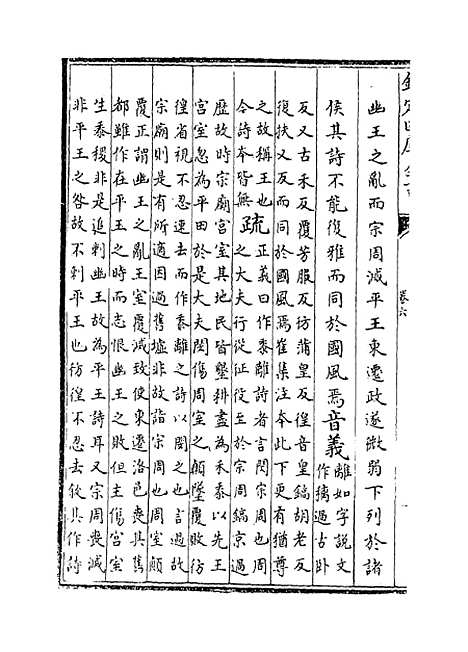 卷六
幽王之亂而宗周滅平王東遷政遂微弱下列於諸
侯其詩不能復雅而同於國風焉音義
離如字說文
作摛過古卧
反又古禾反覆芳服反彷蒲皇反徨音皇鎬胡老反
復扶又反而同於國風焉崔集注本此下更有猶尊
之故稱王也
今詩本皆無
疏
正義曰作黍離詩者言閔宗周也周
之大夫行從征役至於宗周鎬京過
歷故時宗廟宮室其地民皆墾耕盡為禾黍以先王
宮室忽為平田於是大夫閔傷周室之顛墜覆敗彷
徨省視不忍速去而作黍離之詩以閔之也言過故
宗廟則是有所適因過舊墟非故詣宗周也周室顛
覆正謂幽王之亂王室覆滅致使東遷洛邑喪其舊
都雖作在平王之時而志恨幽王之敗但主傷宮室
生黍稷非是追刺幽王故為平王詩耳又宗周喪滅
非平王之咎故不刺平王也彷徨不忍去敘其作詩